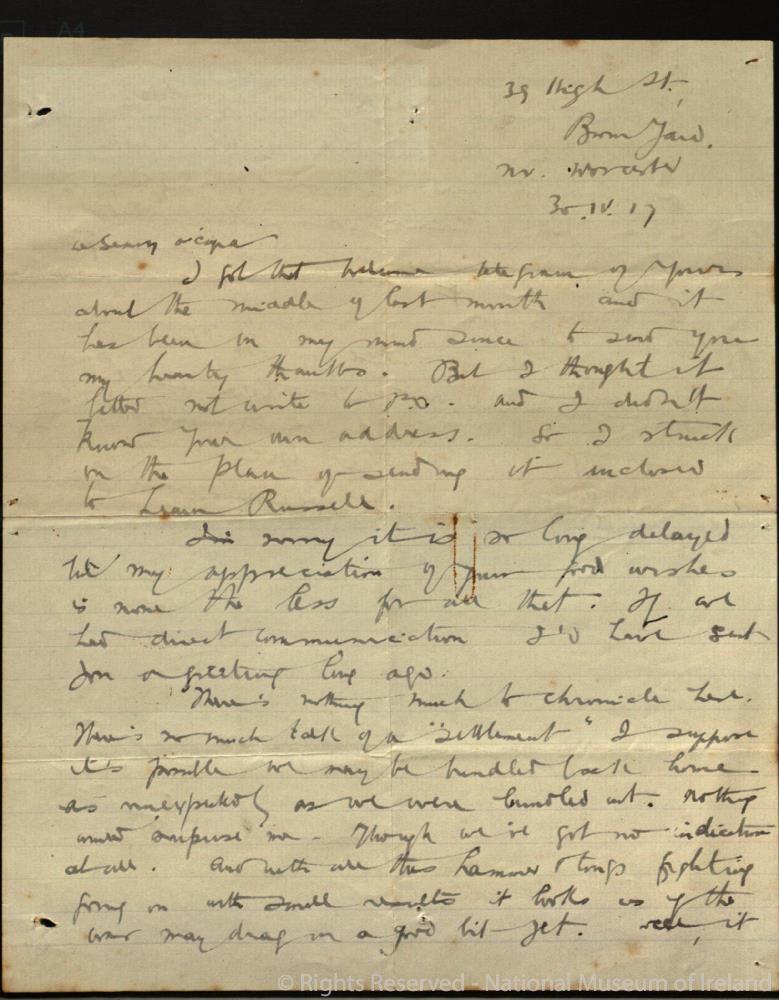 39 High St.,
Bromyard.
nr. Worcester
30.IV.17
a
I got that welcome telegram of yours
about the middle of last month and it
has been in my mind since to send you
my hearty thanks. But I thought it
better not write to P.O. and I didn't
know your own address. So I struck
on the plan of sending it inclosed
to Liam Russell.
I'm sorry it is so long delayed
but my appreciation of your good wishes
is none the less for all that. If we
had direct communication I'd have sent
you a greeting long ago.
There's nothing much to chronicle here.
There's so much talk of a "settlement" I suppose
it's possible we may be bundled back home
as unexpectedly as we were bundled out. Nothing
would surprise me - Though we've got no indication
at all. And with all this hammer & tongs fighting
going on with small results it looks as if the
war may drag on a good bit yet. Well, it
© Rights Reserved - National Museum of Ireland